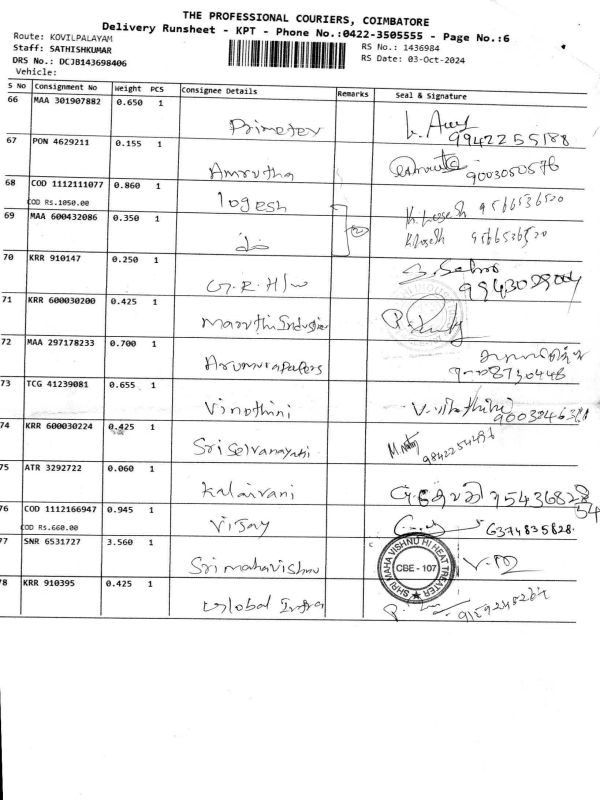 THE PROFESSIONAL COURIERS, COIMBATORE
Delivery Runsheet - KPT - Phone No.:0422-3505555 - Page No.:6
Route: KOVILPALAYAM
RS No.: 1436984
Staff: SATHISHKUMAR
RS Date: 03-Oct-2024
DRS No.: DCJB143698406
Vehicle:
S No Consignment No Weight PCS Consignee Details Remarks Seal & Signature
66 MAA 301907882 0.650 1
Primeter
9942255188
67 PON 4629211 0.155 1
Amrutha
9003050576
68 COD 1112111077 0.860 1
COD RS.1050.00
logesh
K. Logesh 9566536520
69 MAA 600432086 0.350 1
2
K. Logesh 9566536520
70 KRR 910147 0.250 1
G.R. H/w
71 KRR 600030200 0.425 1
Maruthi Industries
72 MAA 297178233 0.700 1
73 TCG 41239081 0.655 1
Vinothini
V. Vinothini
74 KRR 600030224 0.425 1
Sri Selvanayaki
9842254496
75 ATR 3292722 0.060 1
Kalaivani
76 COD 1112166947 0.945 1
COD RS.660.00
Vijay
6374835828
77 SNR 6531727 3.560 1
Sri mahavishnu
SHRI MAHA VISHNU HI HEAT TREATER
CBE - 107
78 KRR 910395 0.425 1
Global Infra